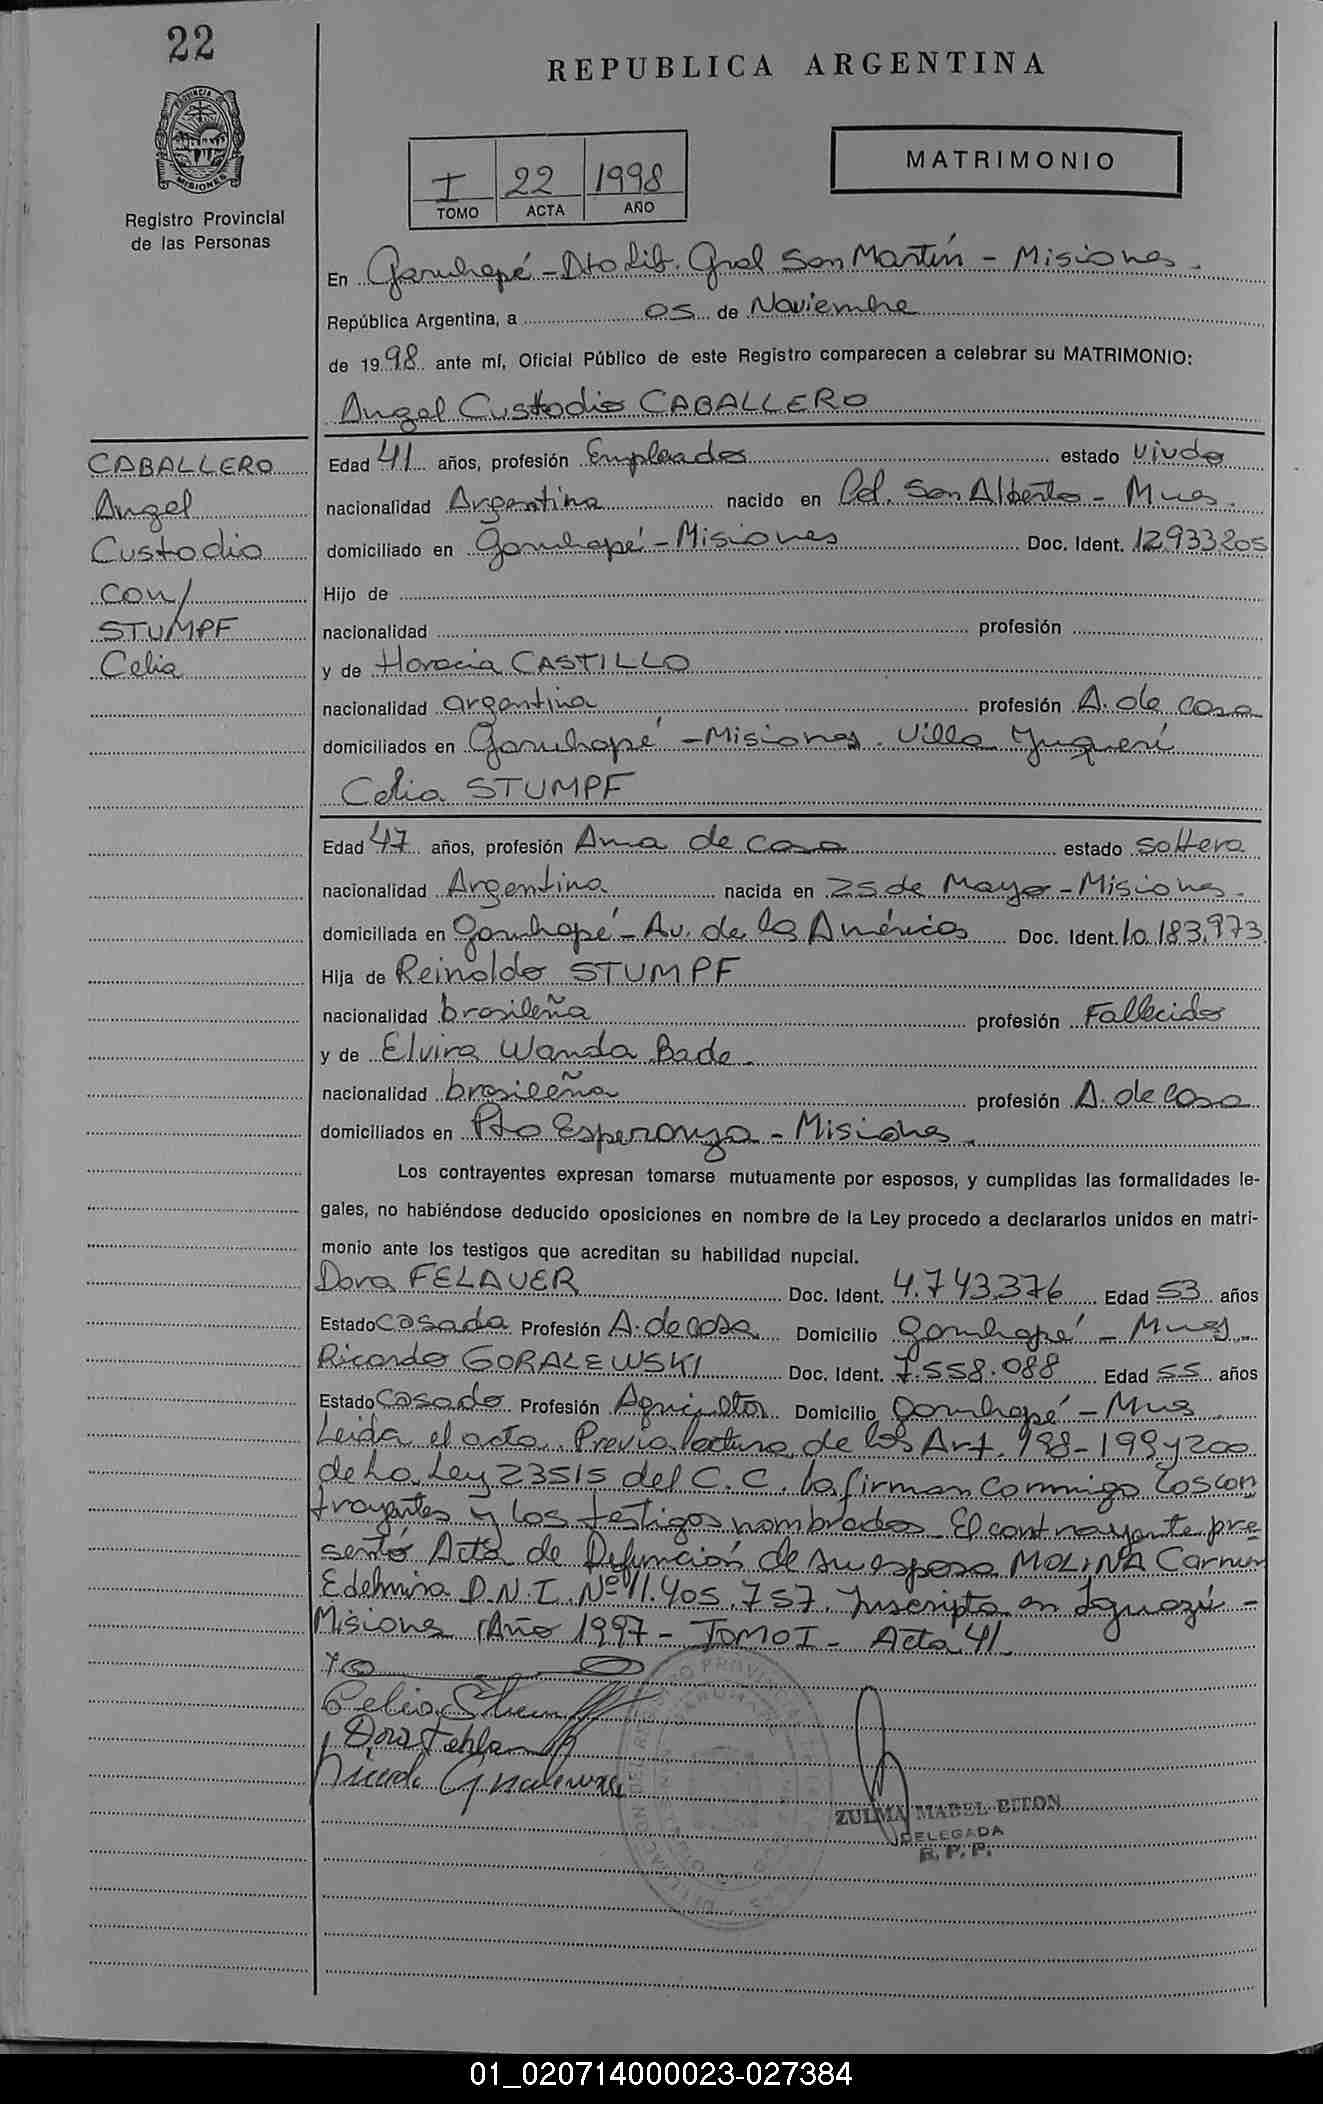 22
REPUBLICA ARGENTINA
PROVINCIA DE
MISIONES
Registro Provincial
de las Personas
MATRIMONIO
I 22 1998
TOMO ACTA AÑO
En Garuhapé - Dto Lib. Gral San Martín - Misiones.
República Argentina, a 05 de Noviembre
de 1998 ante mí, Oficial Público de este Registro comparecen a celebrar su MATRIMONIO:
Angel Custodio CABALLERO
CABALLERO
Angel
Custodio
con/
STUMPF
Celia
Edad 41 años, profesión Empleado estado viudo
nacionalidad Argentina nacido en Col. San Alberto - Mnes.
domiciliado en Garuhapé - Misiones Doc. Ident. 12.933.205
Hijo de
nacionalidad profesión
y de Horacia CASTILLO
nacionalidad argentina profesión A. de casa
domiciliados en Garuhapé - Misiones. Villa Yuquerí
Celia STUMPF
Edad 47 años, profesión Ama de casa estado soltera
nacionalidad Argentina nacida en 25 de Mayo - Misiones.
domiciliada en Garuhapé - Av. de las Américas Doc. Ident. 10.183.973
Hija de Reinoldo STUMPF
nacionalidad brasileña profesión Fallecido
y de Elvira Wanda Bade.
nacionalidad brasileña profesión A. de casa
domiciliados en Pto Esperanza - Misiones.
Los contrayentes expresan tomarse mutuamente por esposos, y cumplidas las formalidades le-
gales, no habiéndose deducido oposiciones en nombre de la Ley procedo a declararlos unidos en matri-
monio ante los testigos que acreditan su habilidad nupcial.
Dora FELAUER Doc. Ident. 4.743.376 Edad 53 años
Estado casada Profesión A. de casa Domicilio Garuhapé - Mnes
Ricardo GORALEWSKI Doc. Ident. 7.558.088 Edad 55 años
Estado casado Profesión Agricultor Domicilio Garuhapé - Mnes
Leida el acta. Previa lectura de los Art. 198-199 y 200
de La Ley 23515 del C.C. la firman conmigo los con
trayentes y los testigos nombrados. El contrayente pre
sentó Acta de Defunción de su esposa MOLINA Carmen
Edelmira D.N.I. Nº 11.405.757. Inscripta en Iguazú -
Misiones. Año 1997 - TOMO I - Acta 41
Celia Stumpf
Dora
Ricardo Goralewski
ZULMA MABEL BITON
DELEGADA
R. P. P.
01_020714000023-027384